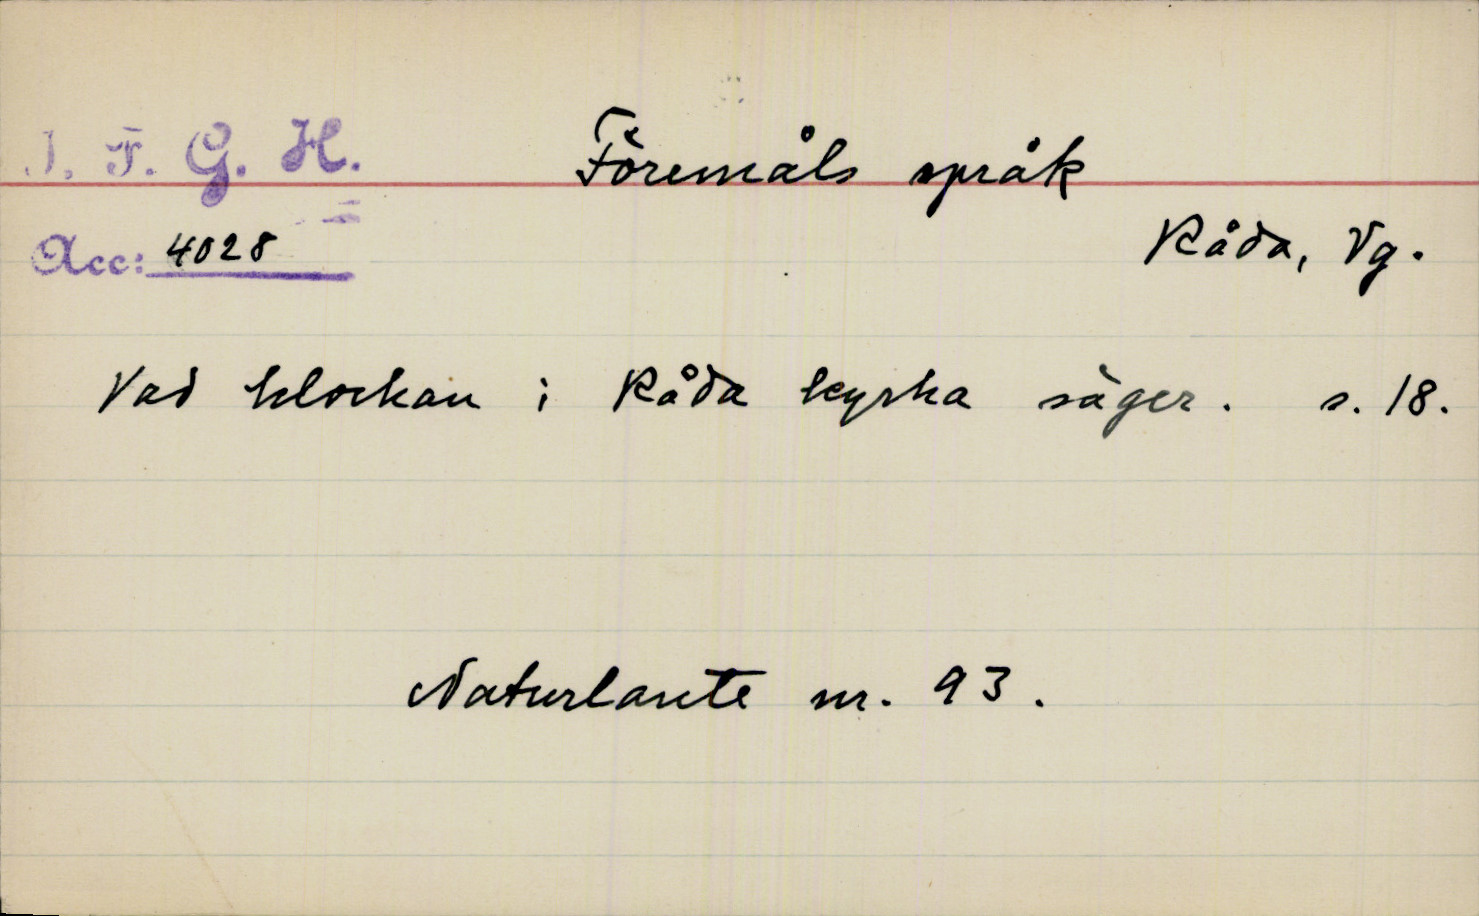 I. F. G. H.
Föremåls språk
Acc: 4028
Råda, Vg.
Vad klockan i Råda kyrka säger. s. 18.
Naturlaute nr. 93.